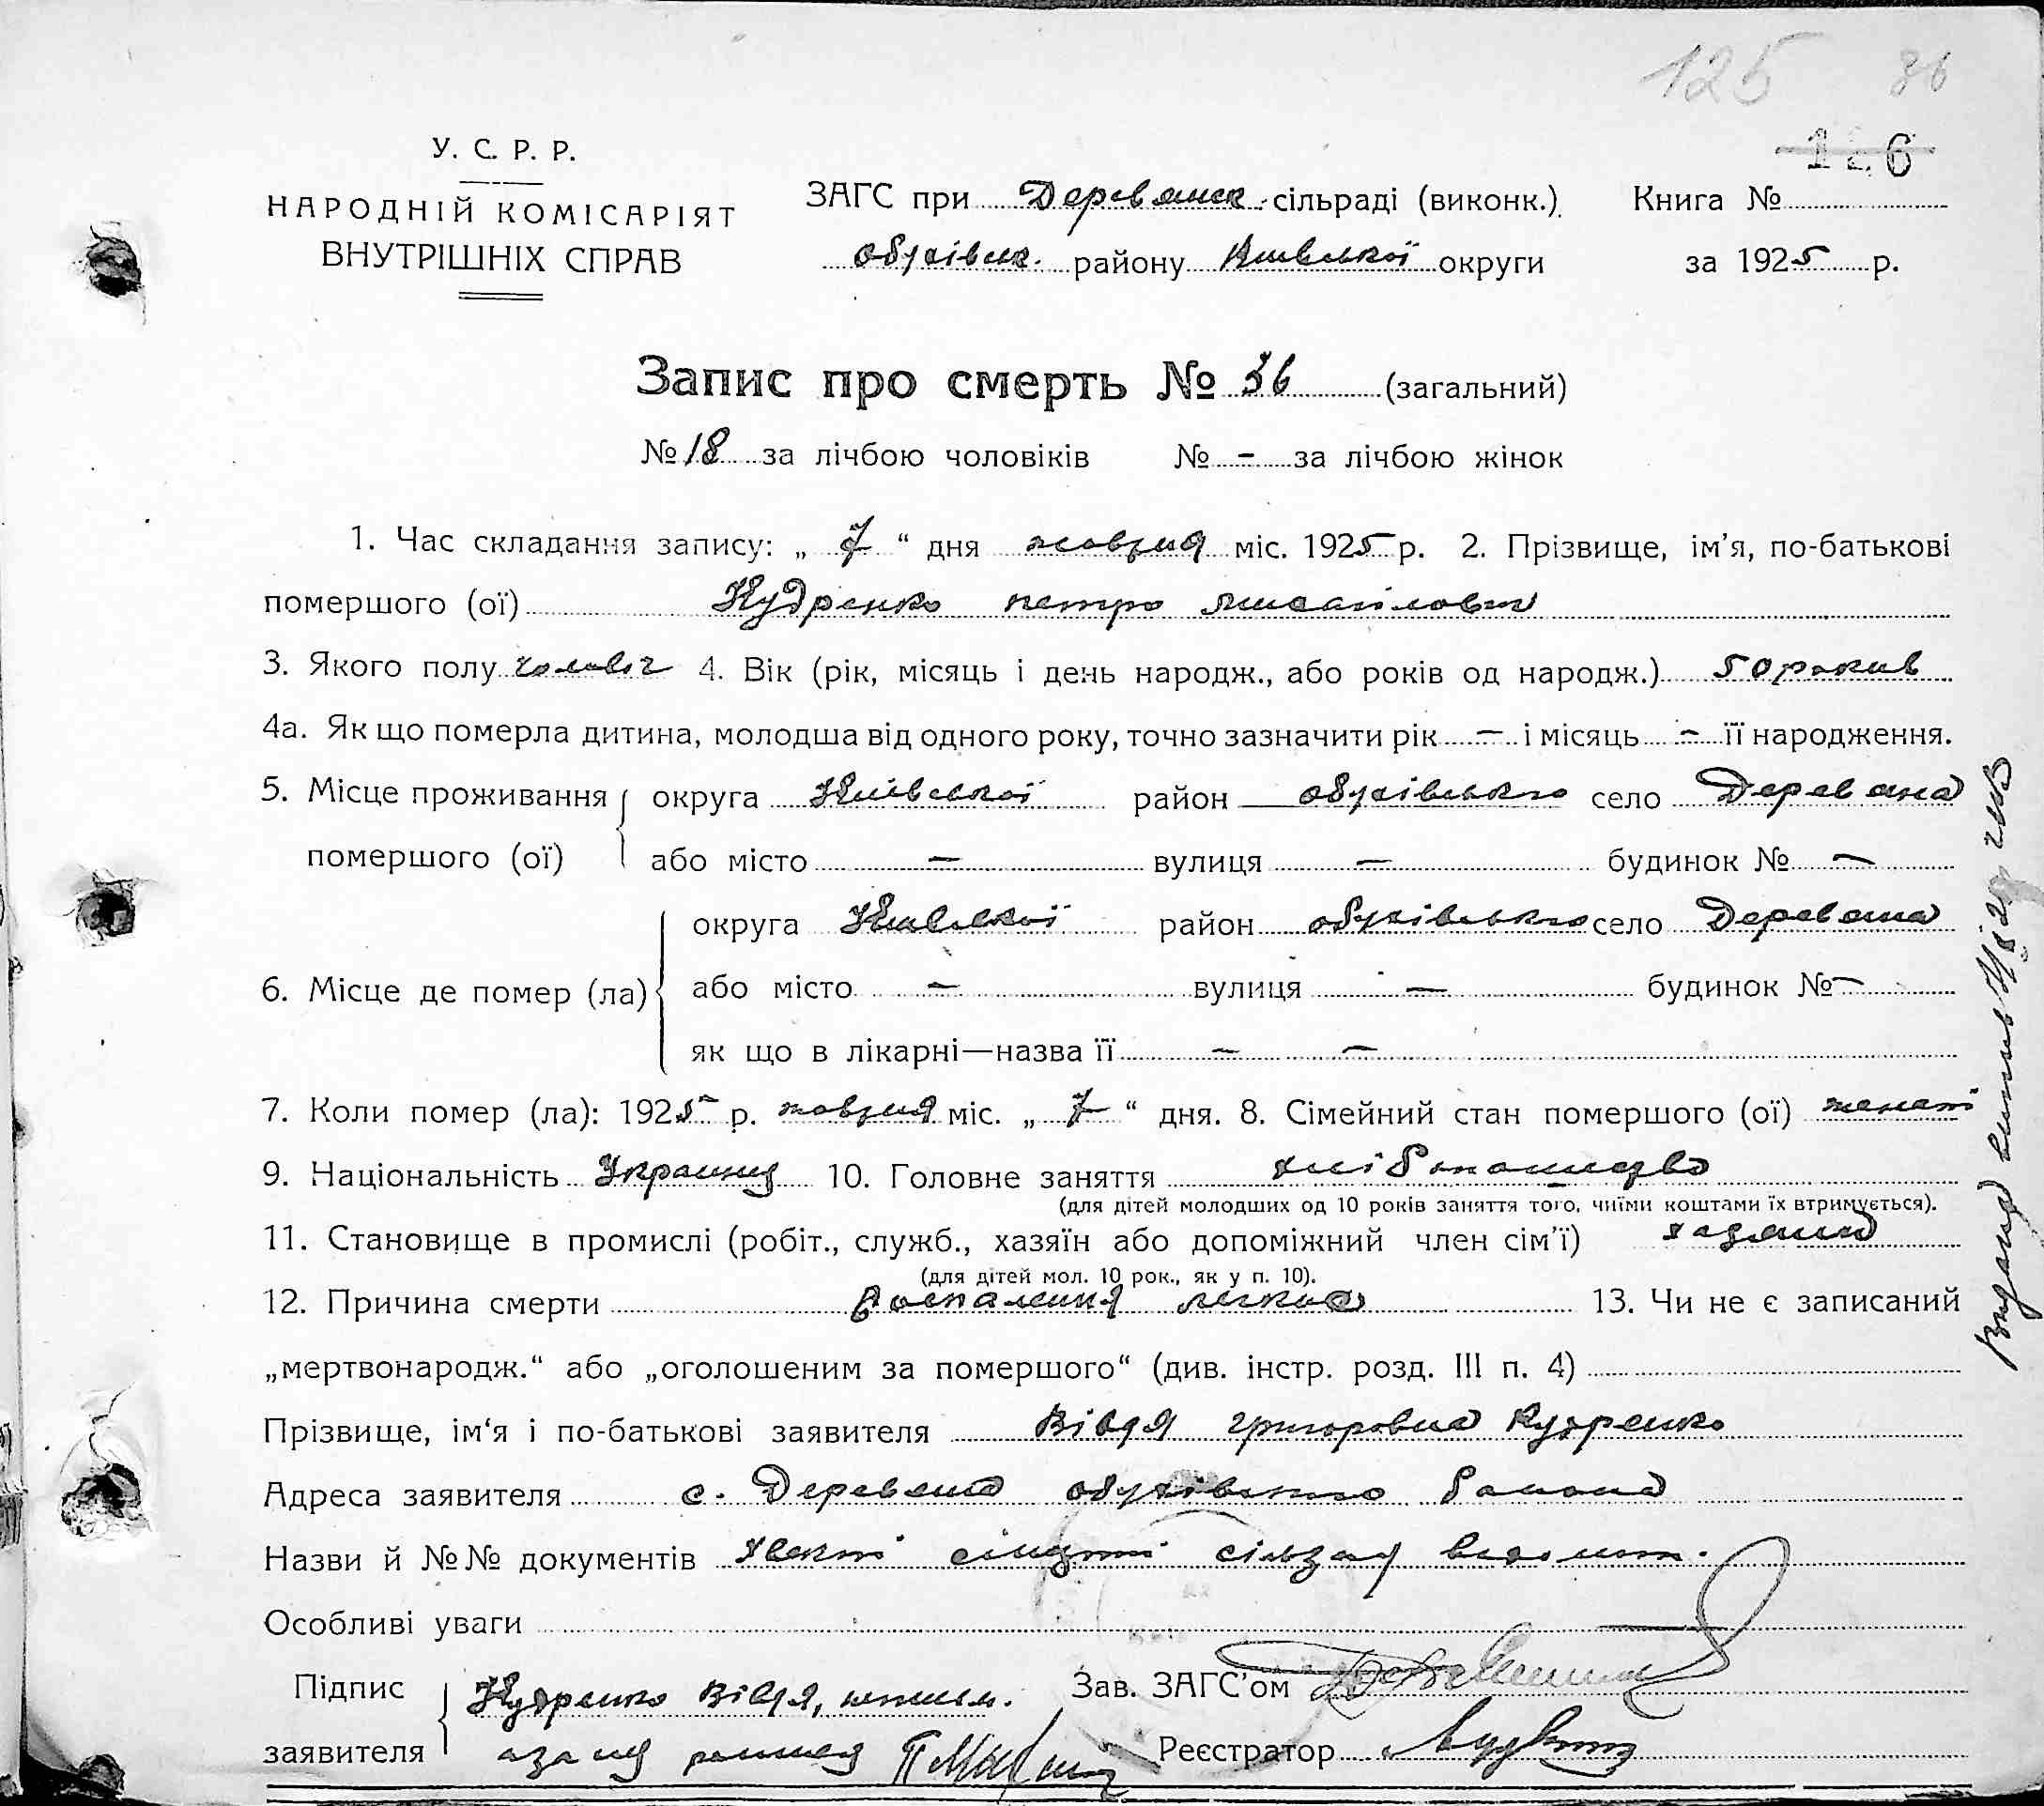 125 36
У. С. Р. Р.
126
НАРОДНІЙ КОМІСАРІЯТ
ВНУТРІШНІХ СПРАВ
ЗАГС при Деревянск. сільраді (виконк.). Книга №
обухівск. району Київської округи за 1925 р.
Запис про смерть № 36 (загальний)
№ 18 за лічбою чоловіків № - за лічбою жінок
1. Час складання запису: „ 7 “ дня жовтня міс. 1925 р. 2. Прізвище, ім’я, по-батькові
помершого (ої) Кудренко петро михайлович
3. Якого полу чоловіч 4. Вік (рік, місяць і день народж., або років од народж.) 50 років
4а. Як що померла дитина, молодша від одного року, точно зазначити рік — і місяць — її народження.
5. Місце проживання округа Київської район обухівського село Деревяна
помершого (ої) або місто — вулиця — будинок № —
округа Київської район обухівського село Деревяна
6. Місце де помер (ла) або місто — вулиця — будинок № —
як що в лікарні—назва її — —
7. Коли помер (ла): 1925 р. жовтня міс. „ 7 “ дня. 8. Сімейний стан помершого (ої) женат
9. Національність Украинц 10. Головне заняття хліборобство
(для дітей молодших од 10 років заняття того, чиїми коштами їх втримується).
11. Становище в промислі (робіт., служб., хазяїн або допоміжний член сім’ї) хазяин
(для дітей мол. 10 рок., як у п. 10).
12. Причина смерти воспаления легких 13. Чи не є записаний
„мертвонародж.“ або „оголошеним за помершого“ (див. інстр. розд. III п. 4)
Прізвище, ім‘я і по-батькові заявителя Вівдя григоровна Кудренко
Адреса заявителя с. Деревяна обухівського района
Назви й №№ документів
Особливі уваги
Підпис Кудренко Вівдя, неписьм. Зав. ЗАГС’ом
заявителя а за неї Реєстратор